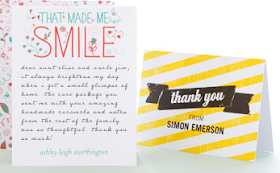 THAT MADE ME
SMILE
dear aunt elise and uncle jim,
it always brightens my day
when i get a small glimpse of
home. the care package you
sent me with your amazing
handmade caramels and notes
from the rest of the family
was so thoughtful. thank you
so much!
ashley leigh worthington
thank you
FROM
SIMON EMERSON